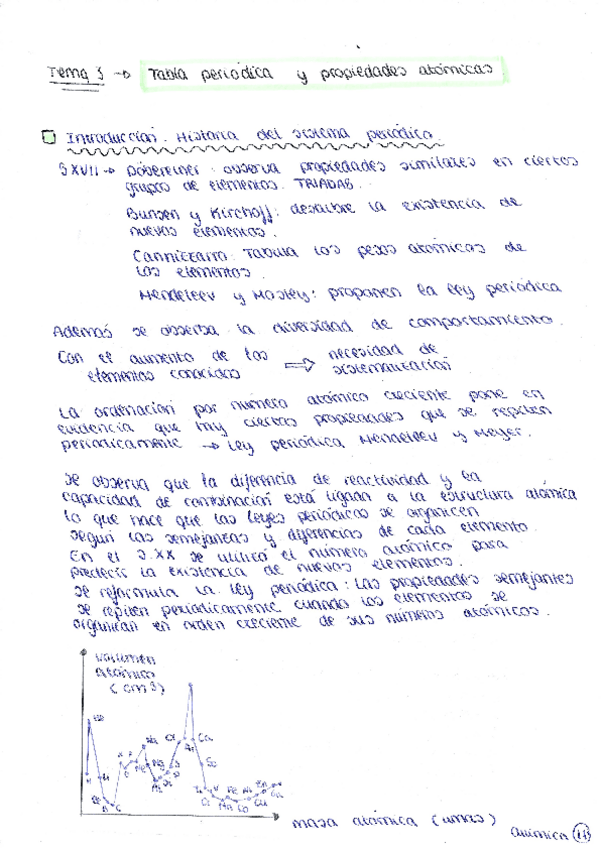 Tema 3 → Tabla periódica y propiedades atómicas.
Introducción. Historia del sistema periódico.
S XVII → Döbereiner: observa propiedades similares en ciertos
grupos de elementos. TRIADAS.
Bunsen y Kirchoff: descubre la existencia de
nuevos elementos.
Cannizzaro: Tabula los pesos atómicos de
los elementos.
Mendeleev y Mosley: proponen la ley periódica
Además se observa la diversidad de comportamiento.
Con el aumento de los ⇒ necesidad de
elementos conocidos sistematización
La ordenación por número atómico creciente pone en
evidencia que hay ciertas propiedades que se repiten
periodicamente → Ley periódica Mendeleev y Meyer.
Se observa que la diferencia de reactividad y la
capacidad de combinación está ligada a la estructura atómica
lo que hace que las leyes periódicas se organicen
según las semejanzas y diferencias de cada elemento.
En el S.XX se utilizó el número atómico para
predecir la existencia de nuevos elementos.
Se reformula la ley periódica: Las propiedades semejantes
se repiten periódicamente cuando los elementos se
organizan en orden creciente de sus números atómicos.
Volumen
atómico
(cm3)
He
H
Li
Be
B
C
N
F
O
Ne
Na
Mg
Al
Si
Cl
Ar
Ca
Sc
Ti
V
Cr
Mn
Fe
Co
Ni
Cu
Zn
Ga
masa atómica (umas)
Química 11